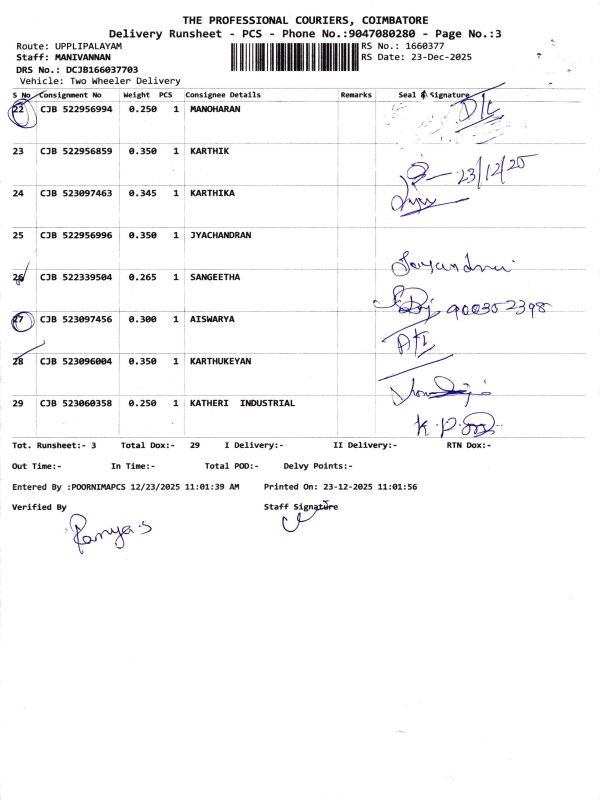 THE PROFESSIONAL COURIERS, COIMBATORE
Delivery Runsheet - PCS - Phone No.:9047080280 - Page No.:3
Route: UPPLIPALAYAM RS No.: 1660377
Staff: MANIVANNAN RS Date: 23-Dec-2025
DRS No.: DCJB166037703
Vehicle: Two Wheeler Delivery
S No Consignment No Weight PCS Consignee Details Remarks Seal & Signature
22 CJB 522956994 0.250 1 MANOHARAN
23 CJB 522956859 0.350 1 KARTHIK
23/12/25
24 CJB 523097463 0.345 1 KARTHIKA
25 CJB 522956996 0.350 1 JYACHANDRAN
26 CJB 522339504 0.265 1 SANGEETHA
900352398
27 CJB 523097456 0.300 1 AISWARYA
28 CJB 523096004 0.350 1 KARTHUKEYAN
29 CJB 523060358 0.250 1 KATHERI INDUSTRIAL
Tot. Runsheet:- 3 Total Dox:- 29 I Delivery:- II Delivery:- RTN Dox:-
Out Time:- In Time:- Total POD:- Delvy Points:-
Entered By :POORNIMAPCS 12/23/2025 11:01:39 AM Printed On: 23-12-2025 11:01:56
Verified By Staff Signature